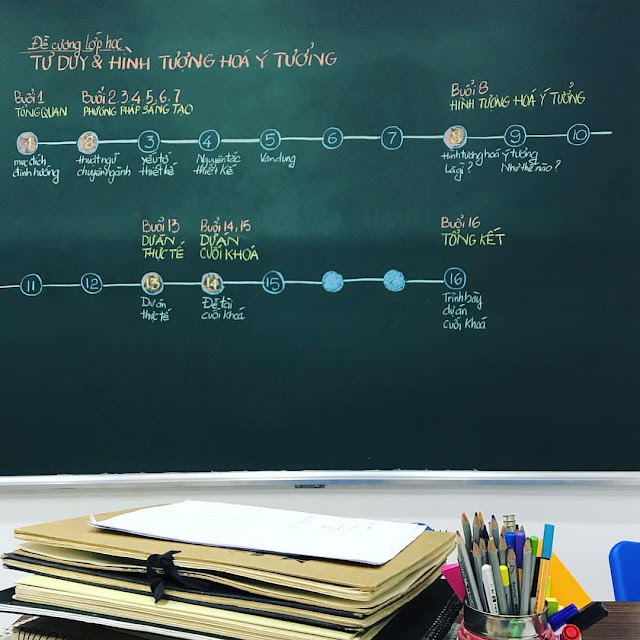 Đề cương lớp học
TƯ DUY & HÌNH TƯỢNG HOÁ Ý TƯỞNG
Buổi 1
TỔNG QUAN
Buổi 2, 3, 4, 5, 6, 7
PHƯƠNG PHÁP SÁNG TẠO
Buổi 8
HÌNH TƯỢNG HOÁ Ý TƯỞNG
1 2 3 4 5 6 7 8 9 10
mục đích
định hướng
thuật ngữ
chuyên ngành
yếu tố
thiết kế
Nguyên tắc
thiết kế
Vận dụng
Hình tượng hoá ý tưởng
Là gì? Như thế nào?
Buổi 13
DỰ ÁN
THỰC TẾ
Buổi 14, 15
DỰ ÁN
CUỐI KHOÁ
Buổi 16
TỔNG KẾT
11 12 13 14 15 16
Dự án
thực tế
Đề tài
cuối khoá
Trình bày
dự án
cuối khoá